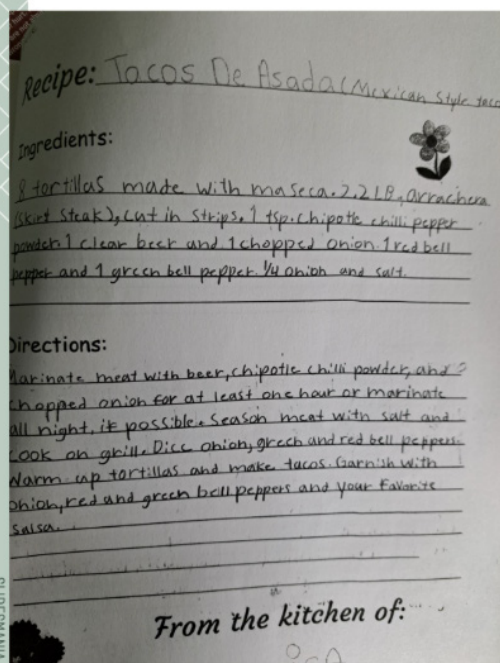 Recipe: Tacos De Asada (Mexican Style taco
Ingredients:
8 tortillas made with maseca. 2.2 LB, arrachera
(skirt steak), cut in strips. 1 tsp. chipotle chilli pepper
powder. 1 clear beer and 1 chopped onion. 1 red bell
pepper and 1 green bell pepper. 1/4 onion and salt.
Directions:
Marinate meat with beer, chipotle chilli powder, and
chopped onion for at least one hour or marinate
all night, if possible. Season meat with salt and
cook on grill. Dice onion, green and red bell peppers.
Warm up tortillas and make tacos. Garnish with
onion, red and green bell peppers and your favorite
salsa.
From the kitchen of:
SLIDESMANIA